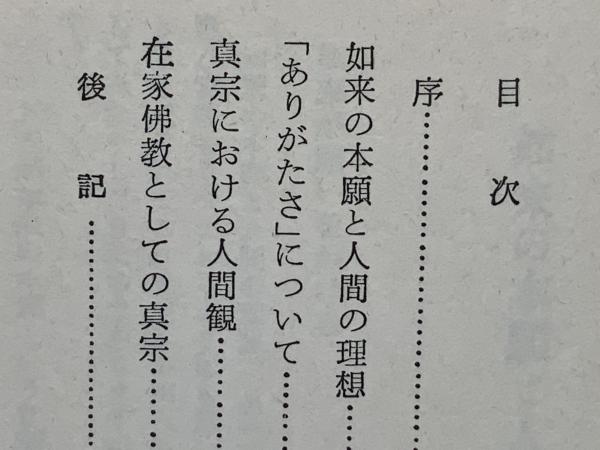 目次
序……………………
如来の本願と人間の理想……
「ありがたさ」について………
真宗における人間観…………
在家佛教としての真宗………
後記……………………